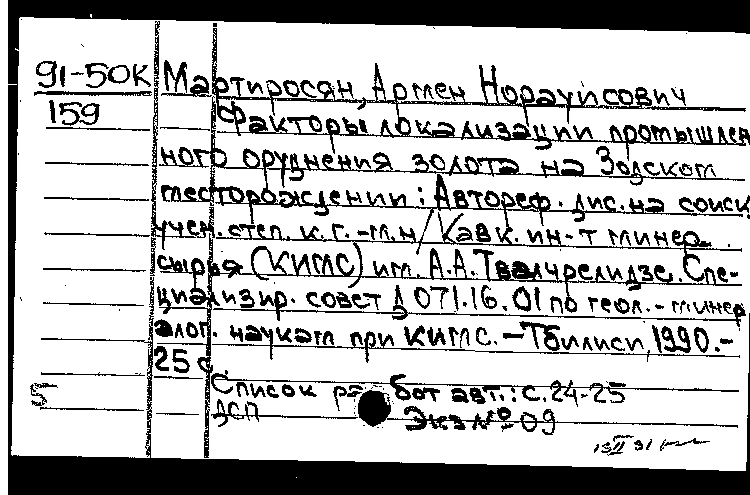 91-50К Мартиросян, Армен Норауисович
159 Факторы локализации промышлен
ного оруднения золота на Зодском
месторождении : Автореф. дис. на соиск
учен. степ. к. г.-м.н / Кавк. ин-т минер.
сырья (КИМС) им. А.А.Твалчрелидзе. Спе-
циализир. совет Д 071.16.01 по геол.-минер
алог. наукам при КИМС. – Тбилиси, 1990.-
25 с
Список работ авт.: с.24-25
5 ДСП Экз № 09